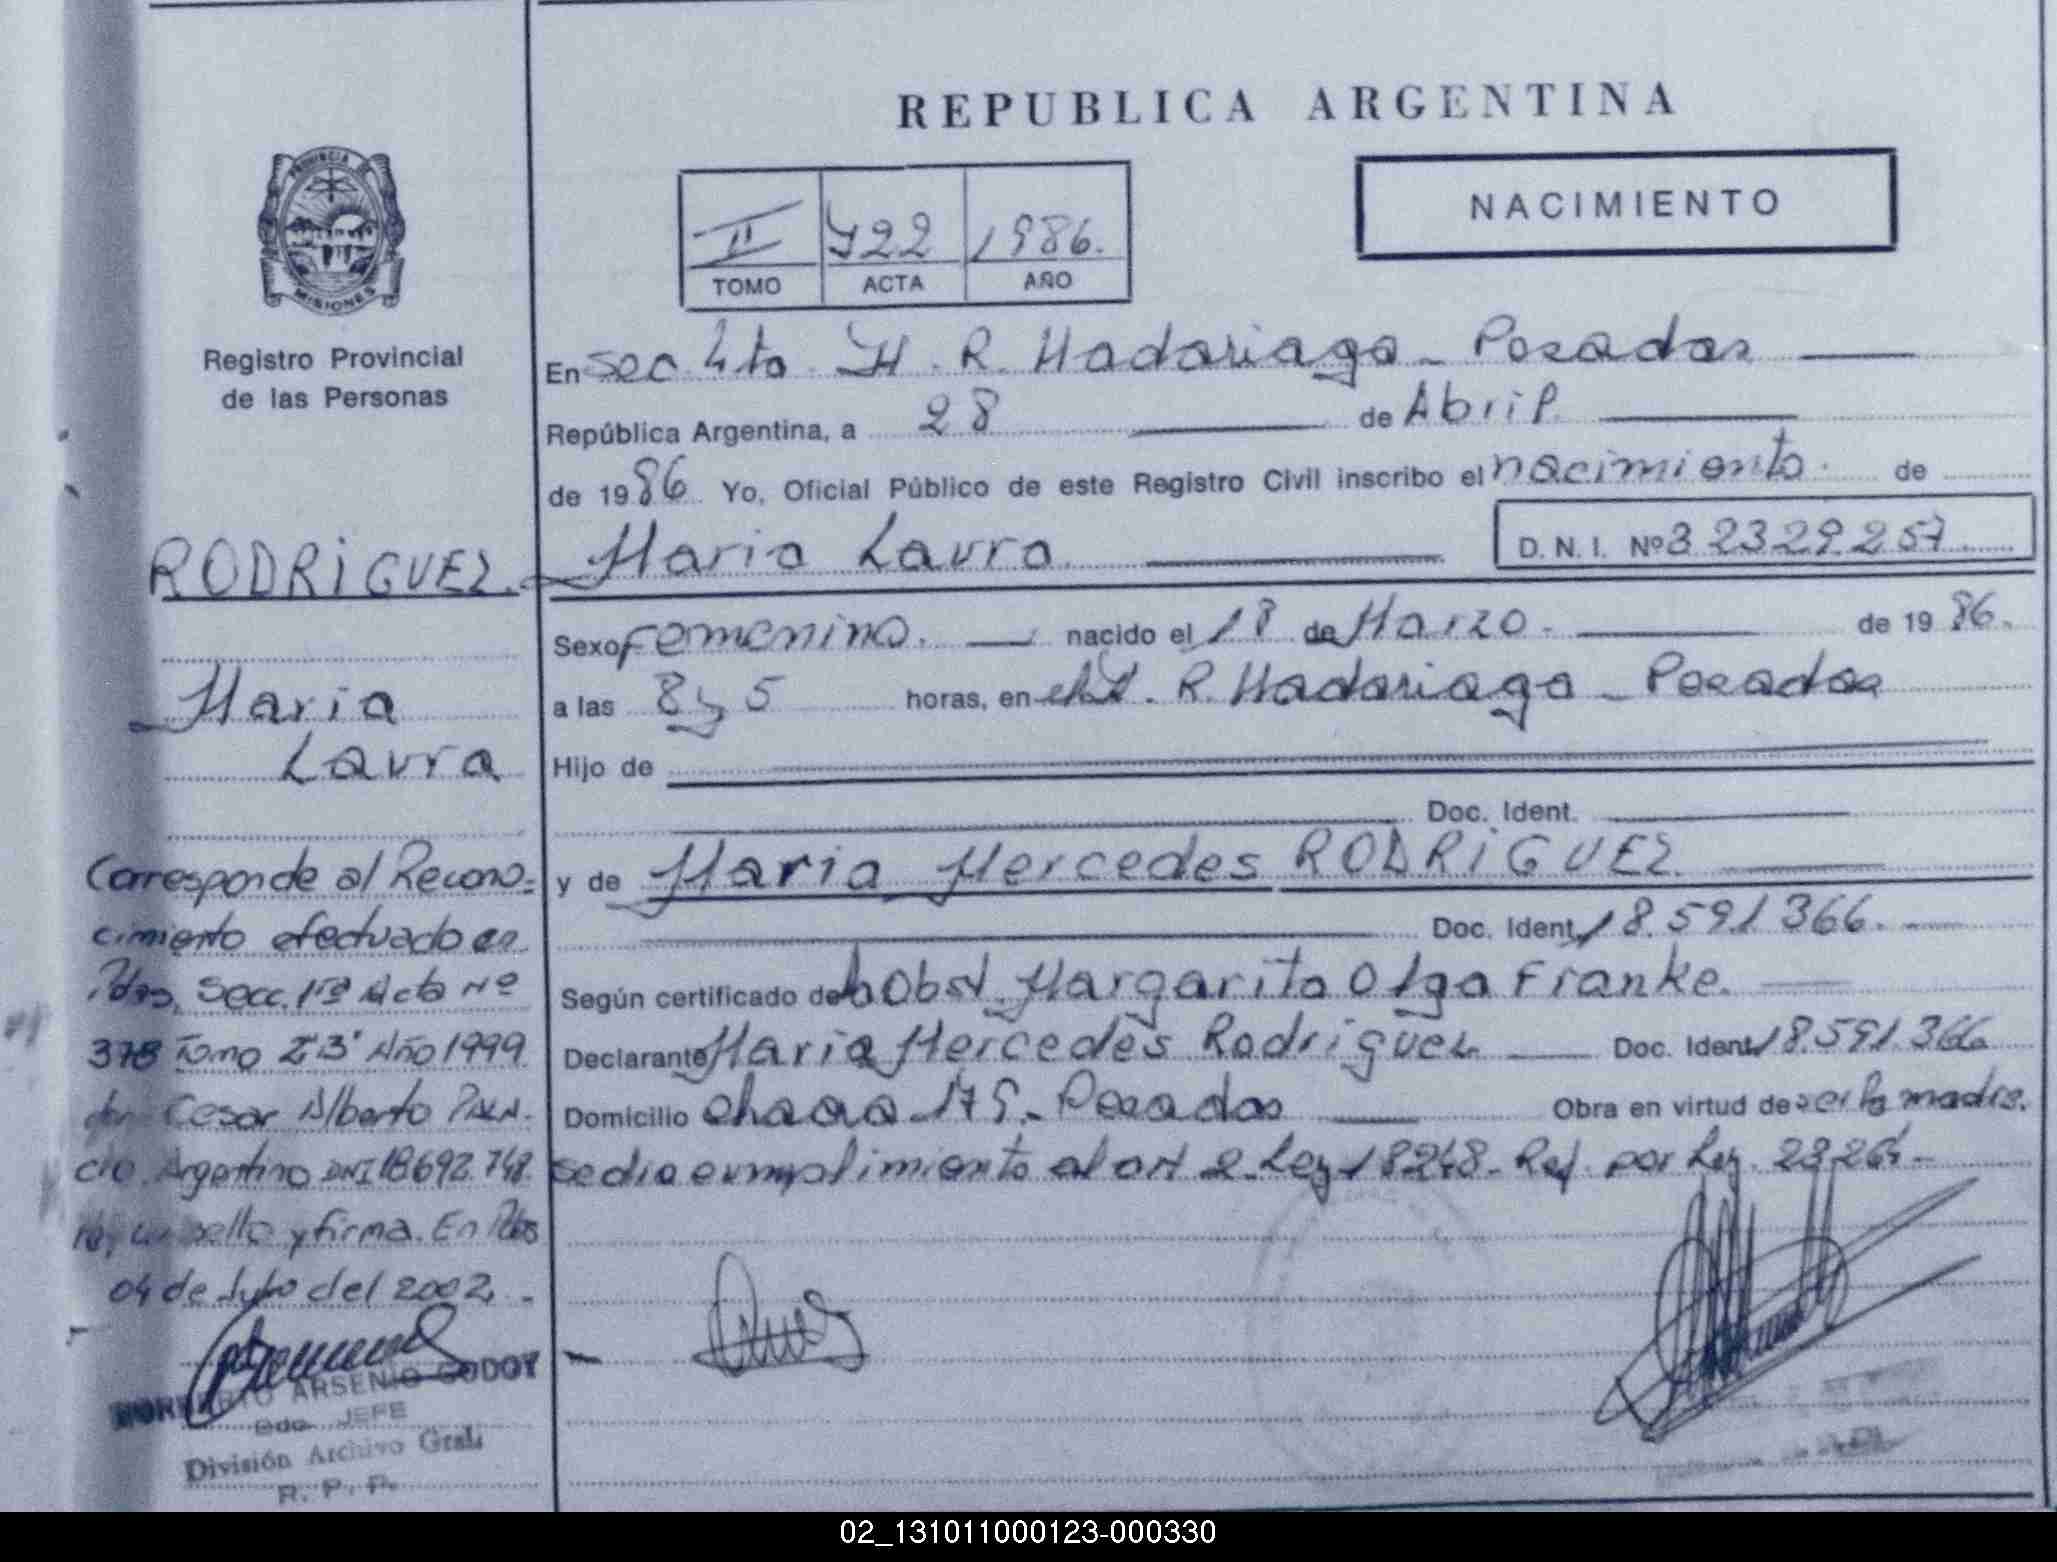 REPUBLICA ARGENTINA
NACIMIENTO
II 422 1986.
TOMO ACTA AÑO
PROVINCIA DE
MISIONES
Registro Provincial
de las Personas
RODRIGUEZ.
Maria
Laura
Corresponde al Recono-
cimiento efectuado en
Pdas, Secc. 1ra Acta Nº
378 Tomo 2'3' Año 1999
Cesar Alberto
Argentino DNI 18692.748.
sello y firma. En Pdas
04 de Julio del 2002.
ARSENIO GODOY
JEFE
División Archivo Gral.
R. P. P.
En Sec. 4ta. H. R. Madariaga - Posadas
República Argentina, a 28 de Abril
de 1986 Yo, Oficial Público de este Registro Civil inscribo el nacimiento. de
Maria Laura D. N. I. Nº 32329257
Sexo Femenino. nacido el 18 de Marzo. de 1986.
a las 8 y 5 horas, en el H. R. Madariaga - Posadas
Hijo de
Doc. Ident.
y de Maria Mercedes RODRIGUEZ.
Doc. Ident. 18.591366.
Según certificado de la Obst. Margarita Olga Franke.
Declarante Maria Mercedes Rodriguez Doc. Ident. 18.591.366
Domicilio chacra 175. Posadas Obra en virtud de ser la madre.
se dio cumplimiento al art. 2. Ley 18248. Ref. por Ley. 23264
02_131011000123-000330